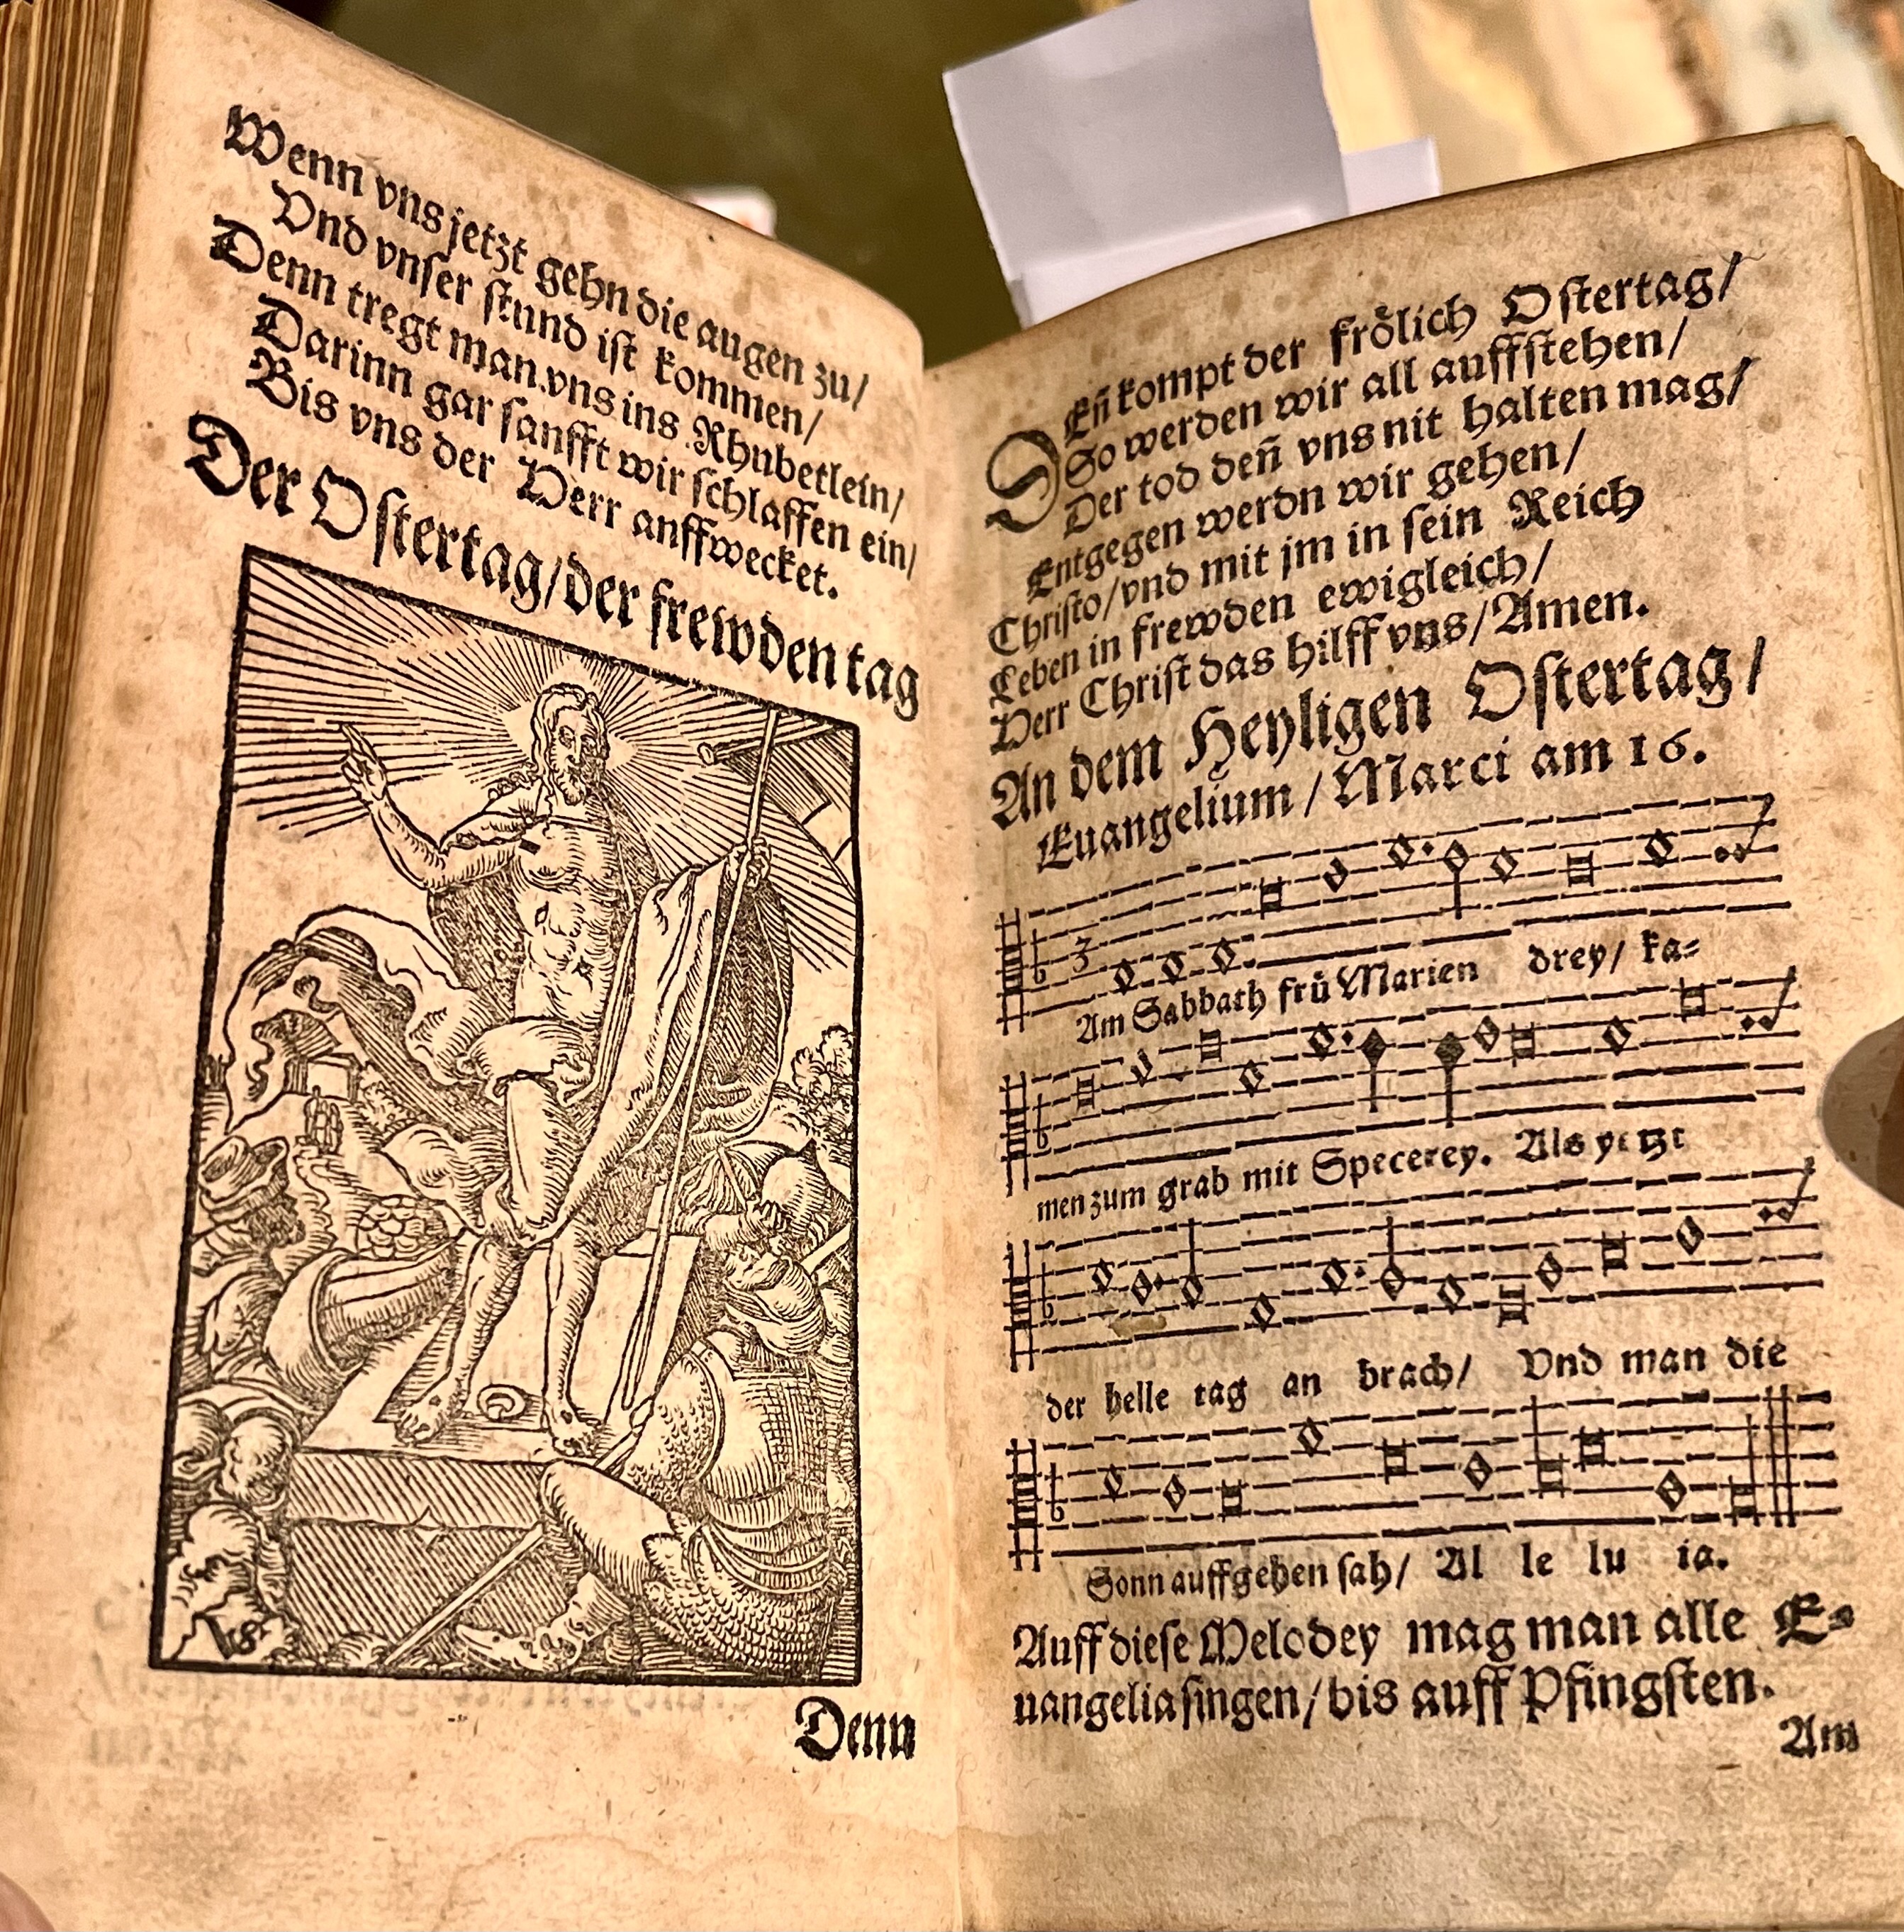 Wenn vns jetzt gehn die augen zu/
Vnd vnser stund ist kommen/
Denn tregt man vns ins Rhubetlein/
Darinn gar sanfft wir schlaffen ein/
Bis vns der Herr auffwecket.
Der Ostertag/der frewden tag
Denn
DEñ kompt der frőlich Ostertag/
So werden wir all aufferstehen/
Der tod deñ vns nit halten mag/
Entgegen werdn wir gehen/
Christo/vnd mit jm in sein Reich
Leben in frewden ewigleich/
Herr Christ das hilff vns/Amen.
An dem Heyligen Ostertag/
Euangelium/Marci am 16.
3
Am Sabbath frů Marien drey/ ka⸗
men zum grab mit Specerey. Als yetzt
der helle tag an brach/ Vnd man die
Sonn auffgehen sah/ Al le lu ia.
Auff diese Melodey mag man alle E⸗
uangelia singen/bis auff Pfingsten.
Am